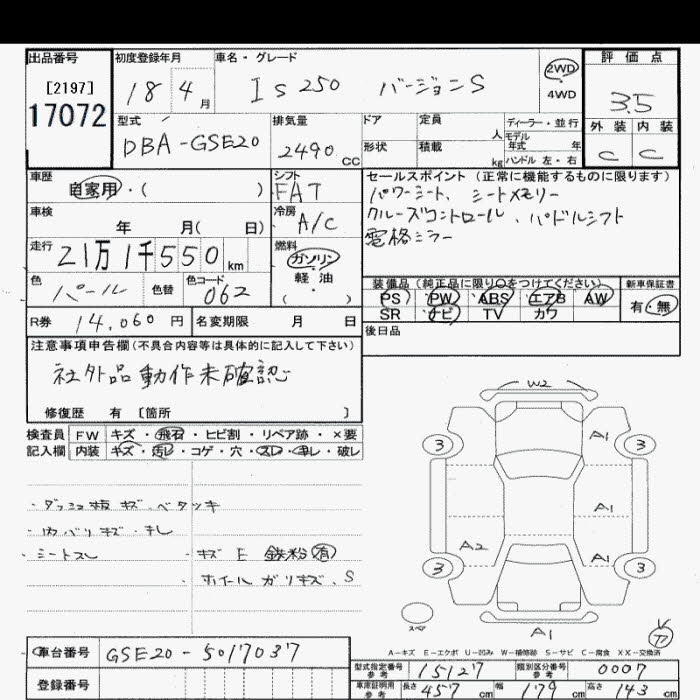 出品番号
[2197]
17072
初度登録年月
18 4月
車名・グレード
IS250 バージョンS
2WD
4WD
評価点
3.5
外装 内装
C C
型式
DBA-GSE20
排気量
2490 CC
ドア 定員 人
形状 積載 kg
ディーラー・並行
モデル
年式 年
ハンドル 左・右
車歴
自家用・( )
シフト
FAT
車検
年 月( 日)
冷房
A/C
走行
21万1千550 km
燃料
ガソリン
軽・油
( )
色
パール
色替
色コード
062
セールスポイント (正常に機能するものに限ります)
パワーシート、シートメモリー
クルーズコントロール、パドルシフト
電格ミラー
装備品(純正品に限り○をつけてください)
PS PW ABS エアB AW
SR ナビ TV カワ
新車保証書
有・無
R券 14,060 円
名変期限 月 日
後日品
注意事項申告欄(不具合内容等は具体的に記入して下さい)
社外品動作未確認
修復歴 有 [箇所 ]
検査員 FW キズ・飛石・ヒビ割・リペア跡・×要
記入欄 内装 キズ・汚レ・コゲ・穴・スレ・キレ・破レ
・ダッシュ板キズ、ベタツキ
・内バリキズ・キレ
・シートスレ
・キズE 鉄粉有
・ホイールガリキズ、S
W2
3 A1 3
A1
A2 A1
3 3
スペア
A1
A-キズ E-エクボ U-凹み W-補修跡 S-サビ C-腐食 XX-交換済
車台番号 GSE20-5017037
登録番号
型式指定番号
参考
15127
類別区分番号
参考
0007
車庫証明用
参考
長さ 457 cm 幅 179 cm 高さ 143 cm